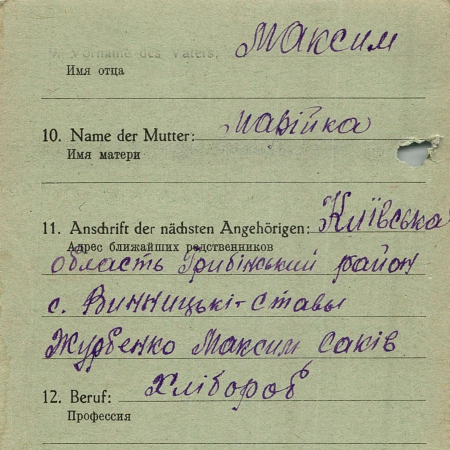 9. Vorname des Vaters: Максим
Имя отца
10. Name der Mutter: Марійка
Имя матери
11. Anschrift der nächsten Angehörigen: Київська
Адрес ближайших родственников
область Грибінський район
с. Винницькі-Ставы
Журбенко Максим Саків
12. Beruf: Хлібороб
Профессия